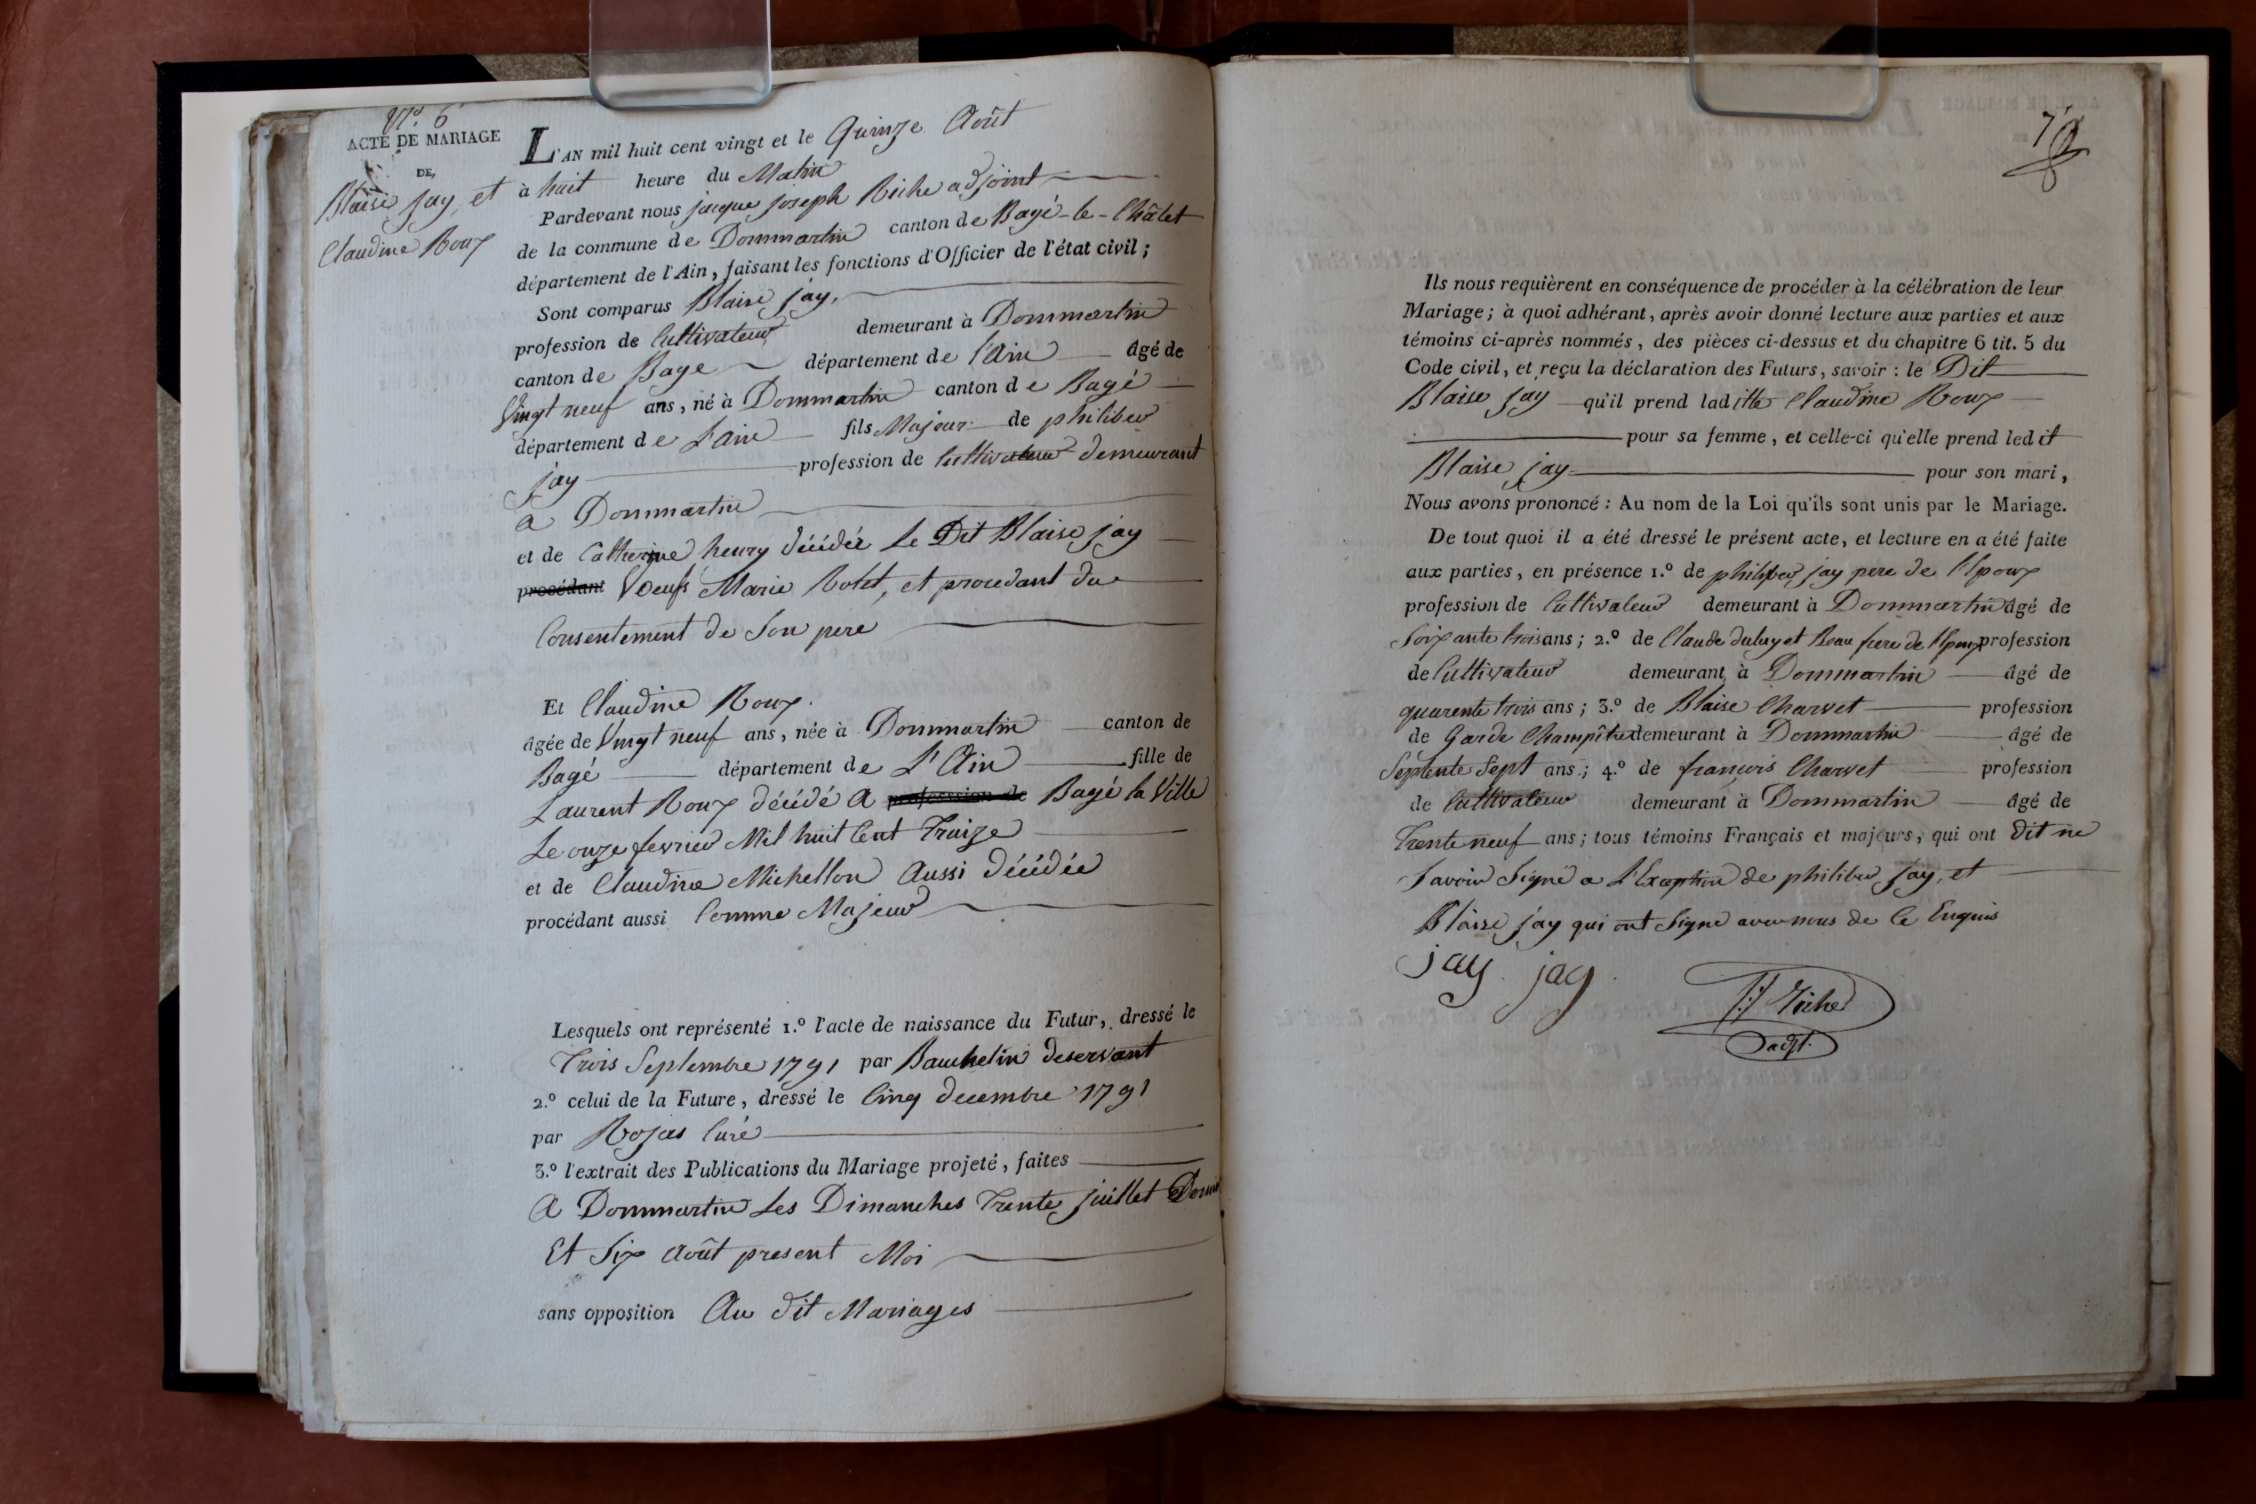 N.º 6
ACTE DE MARIAGE
DE,
Blaise jay, et
Claudine Roux
L'AN mil huit cent vingt et le Quinze Août
à huit heure du Matin
Pardevant nous jacque joseph Riche adjoint
de la commune de Dommartin canton de Bagé-le-Châtel
département de l'Ain, faisant les fonctions d'Officier de l'état civil;
Sont comparus Blaise jay,
profession de Cultivateur demeurant à Dommartin
canton de Bage département de l'Ain âgé de
Vingt neuf ans, né à Dommartin canton de Bagé
département de L'ain fils Majeur de philiber
jay profession de Cultivateur demeurant
a Dommartin
et de Catherine henry décédée Le Dit Blaise jay
procédant Voeufs Marie Botet, et procedant du
Consentement de Son pere
Et Claudine Roux.
âgée de Vingt neuf ans, née à Dommartin canton de
Bagé département de L'Ain fille de
Laurent Roux décédé a profession de Bagé la Ville
Le onze fevrier Mil huit Cent Traize
et de Claudine Michellon Aussi décédée
procédant aussi Comme Majeur
Lesquels ont représenté 1.º l'acte de naissance du Futur, dressé le
Trois Septembre 1791 par Bauchelin deservant
2.º celui de la Future, dressé le Cinq decembre 1791
par Rojas Curé
3.º l'extrait des Publications du Mariage projeté, faites
A Dommartin Les Dimanches Trente juillet
Et Six Août present Moi
sans opposition Au dit Mariages
Ils nous requièrent en conséquence de procéder à la célébration de leur
Mariage; à quoi adhérant, après avoir donné lecture aux parties et aux
témoins ci-après nommés, des pièces ci-dessus et du chapitre 6 tit. 5 du
Code civil, et reçu la déclaration des Futurs, savoir: le Dit
Blaise jay qu'il prend laditte Claudine Roux
pour sa femme, et celle-ci qu'elle prend ledit
Blaise jay pour son mari,
Nous avons prononcé: Au nom de la Loi qu'ils sont unis par le Mariage.
De tout quoi il a été dressé le présent acte, et lecture en a été faite
aux parties, en présence 1.º de philiber jay pere de l'Epoux
profession de Cultivateur demeurant à Dommartin âgé de
Soixante trois ans; 2.º de Claude duluyet Beau frere de l'Epoux profession
de Cultivateur demeurant à Dommartin âgé de
quarente trois ans; 3.º de Blaise Charvet profession
de Garde Champêtre demeurant à Dommartin âgé de
Septente Sept ans; 4.º de françois Charvet profession
de Cultivateur demeurant à Dommartin âgé de
Trente neuf ans; tous témoins Français et majeurs, qui ont dit ne
Savoir Signé a L'Exception de philiber jay, et
Blaise jay qui ont Signé avec nous de Ce Enquis
jay. jay.
Riche
adjt.